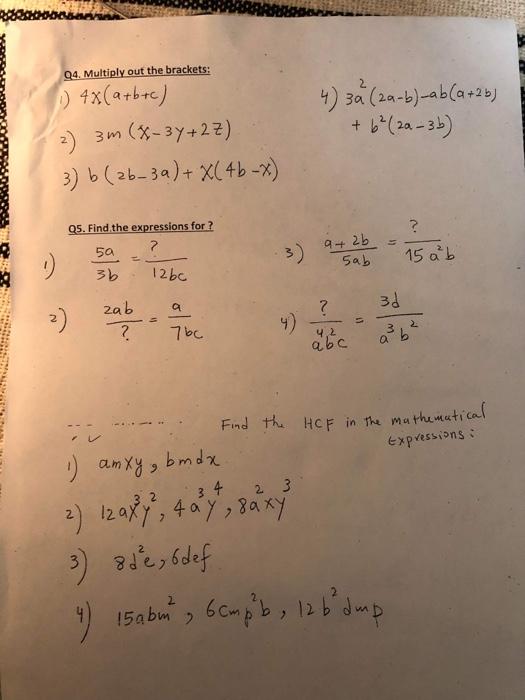 Q4. Multiply out the brackets:
1) 4x(a+b+c)
2) 3m (x-3y+2z)
3) b(2b-3a)+x(4b-x)
4) 3a²(2a-b)-ab(a+2b)
+ b²(2a-3b)
Q5. Find the expressions for ?
1) 5a/3b = ?/12bc
2) 2ab/? = a/7bc
3) a+2b/5ab = ?/15a²b
4) ?/a⁴b²c = 3d/a³b²
Find the HCF in the mathematical
Expressions:
1) amxy, bmdx
2) 12ax³y², 4a³y⁴, 8a²xy³
3) 8d²e, 6def
4) 15abm², 6cmp²b, 12b²dmp